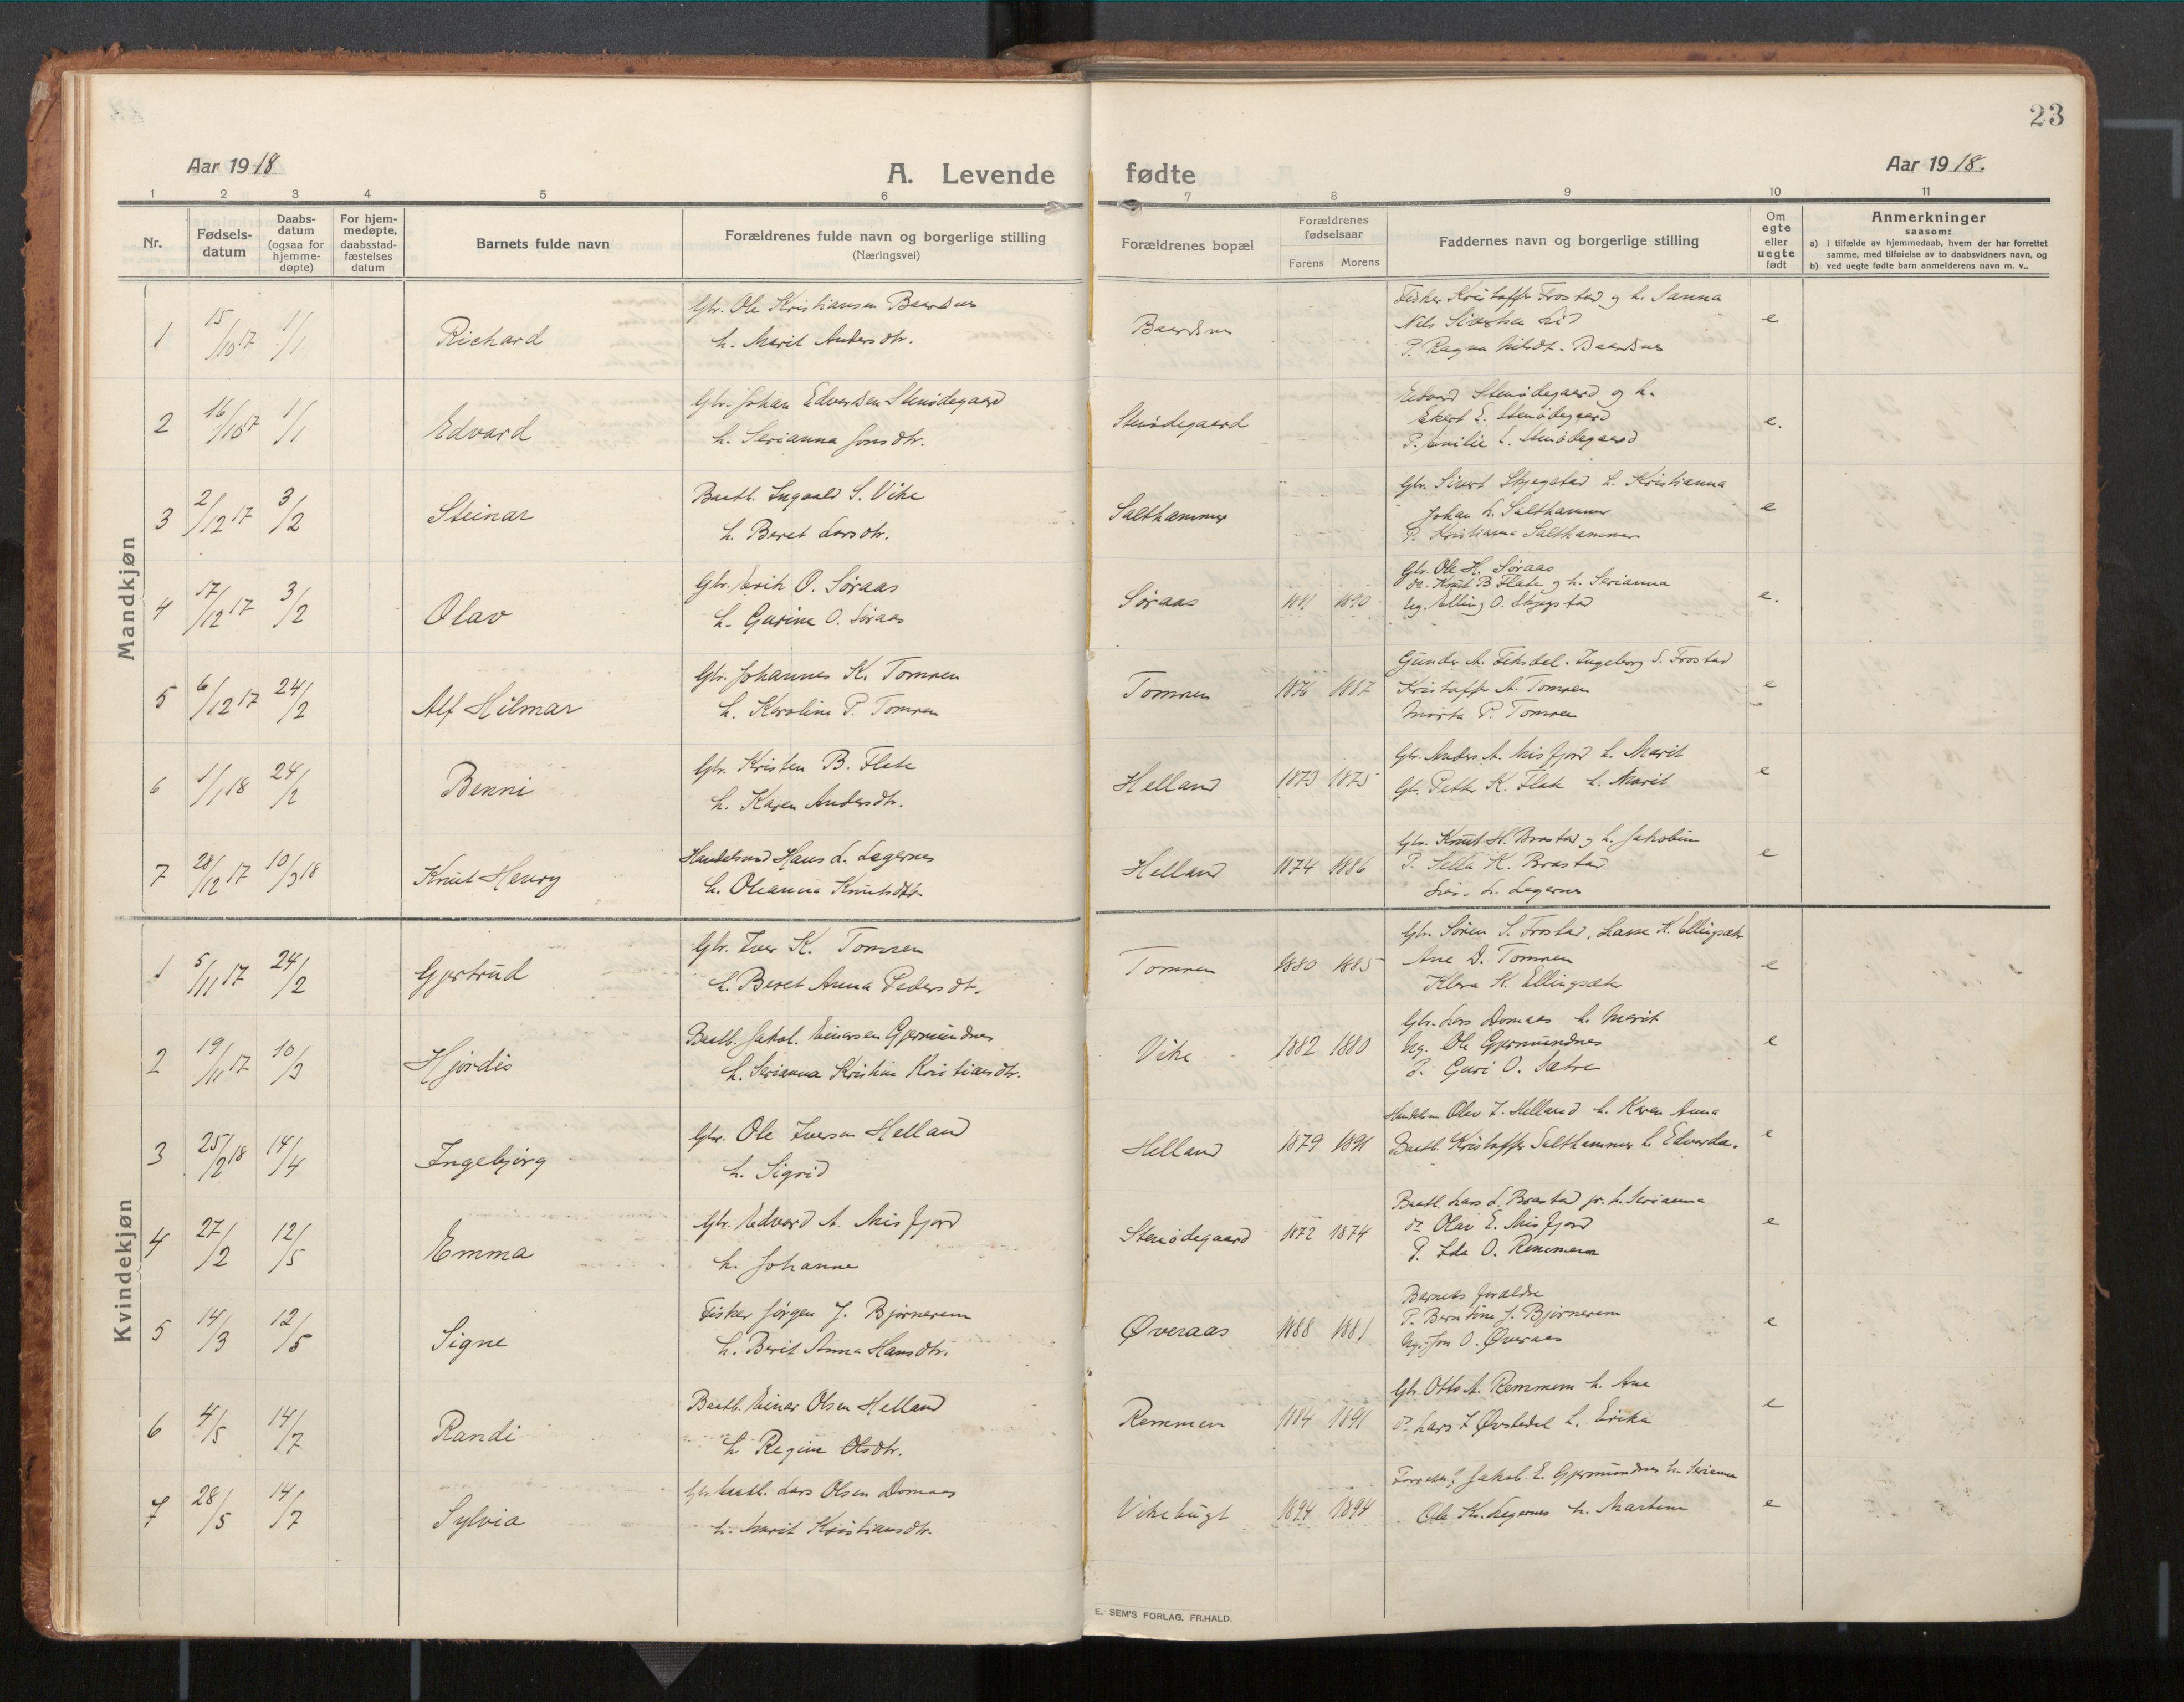 23
Aar 1918
A. Levende fødte
Aar 1918.
1 2 3 4 5 6 7 8 9 10 11
Nr.
Fødsels-
datum
Daabs-
datum
(ogsaa for
hjemme-
døpte)
For hjem-
medøpte,
daabsstad-
fæstelses
datum
Barnets fulde navn
Forældrenes fulde navn og borgerlige stilling
(Næringsvei)
Forældrenes bopæl
Forældrenes
fødselsaar
Farens Morens
Faddernes navn og borgerlige stilling
Om
egte
eller
uegte
født
Anmerkninger
saasom:
a) i tilfælde av hjemmedaab, hvem der har forrettet
samme, med tilføielse av to daabsvidners navn, og
b) ved uegte fødte barn anmelderens navn m. v..
Mandkjøn
1 15/10 17 1/1 Richard
Gbr. Ole Kristiansen Baardsnes
h. Marit Andersdtr.
Baardsnes
Fisker Kristoffer Frostad og h. Sanna
Nils Sivertsen Lid
P. Ragna Nilsdt. Baardsnes
e
2 16/10 17 1/1 Edvard
Gbr. Johan Edvardsen Stenødegaard
h. Serianna Jonsdtr.
Stenødegaard
Edvard Stenødegaard og h.
Ekert E. Stenødegaard
P. Emilie E. Stenødegaard
e.
3 2/12 17 3/2 Steinar
Baatb. Ingvald S. Vike
h. Beret Larsdtr.
Salthammer
Gbr. Sivert Skjegstad h. Kristianna
Johan L. Salthammer
P. Kristianna Salthammer
e
4 17/12 17 3/2 Olav
Gbr. Erik O. Søraas
h. Gurine O. Søraas
Søraas 1890
Gbr. Ole H. Søraas
do. Knut B Flate og h. Serianna
Ug. Elling O. Skjegstad
e.
5 6/12 17 24/2 Alf Hilmar
Gbr. Johannes K. Tomren
h. Karoline P. Tomren
Tomren 1876 1887
Gunder A. Fiksdal. Ingeborg S. Frostad
Kristoffer A. Tomren
Marta P. Tomren
e
6 1/1 18 24/2 Benni
Gbr. Kristen B. Flate
h. Karen Andersdtr.
Helland 1873 1875
Gbr. Anders A. Misfjord h. Marit
Gb. Petter K. Flate h. Marit
e
7 28/12 17 10/3 18 Knut Henry
Handelsmd Hans L. Legernes
h. Oleanna Knutsdtr.
Helland 1874 1886
Gbr. Knut H. Brastad og h. Jakobine
P. Sella K. Brastad
L. Legernes
e
Kvindekjøn
1 5/11 17 24/2 Gjertrud
Gbr. Iver K. Tomren
h. Beret Anna Pedersdt.
Tomren 1880 1885
Gbr. Søren S. Frostad, Lasse K. Ellingsæter
Ane D. Tomren
Klara K. Ellingsæter
e
2 19/11 17 10/3 Hjørdis
Baatb. Jakob Einarsen Gjermundnes
h. Serianna Kristine Kristiansdtr.
Vike 1882 1880
Gbr. Lars Domaas h. Marit
Ug. Ole Gjermundnes
P. Guri O. Sætre
e
3 25/2 18 14/4 Ingebjørg
Gbr. Ole Iversen Helland
h. Sigrid
Helland 1879 1891
Handelsm Olav I. Helland h. Karen Anna
Baatb. Kristoffer Salthammer h. Edvarda.
e
4 27/2 12/5 Emma
Gbr. Edvard A. Misfjord
h. Johanne
Stenødegaard 1872 1874
Baatb. Lars L. Brastad jr. h. Serianna
do Olav E. Misfjord
P. Ida O. Remmem
e
5 14/3 12/5 Signe
Fisker Jørgen J. Bjørnerem
h. Berit Anna Hansdtr.
Øveraas 1888 1881
Barnets forældre
P. Berntine J. Bjørnerem
Ug. Jon O. Øveraas
e
6 4/5 14/7 Randi
Baatb. Einar Olsen Helland
h. Regine Olsdtr.
Remmem 1884 1891
Gbr. Otto A. Remmem h. Ane
do Lars I Øvstedal h. Erika
e
7 28/5 14/7 Sylvia
Baatb. Lars Olsen Domaas
h. Marit Kristiansdtr.
Vikebugt 1894 1894
Jakob E. Gjermundnes h. Serianna
Ole Kr. Legernes h. Martine
e
E. SEM'S FORLAG, FR.HALD.